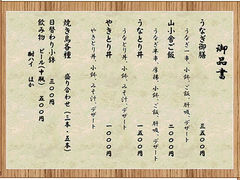 御品書
うなぎ御膳 三五〇〇
うなぎ一串、小鉢、ご飯、肝吸、デザート
山小舎ご飯 二〇〇〇
うなぎ半串、小鉢、ご飯、肝吸、デザート
うなとり丼 一五〇〇
小鉢、肝吸、デザート
やきとり丼 一〇〇〇
やきとり丼、小鉢、みそ汁、デザート
焼き鳥各種 盛り合わせ(三本・五本)
日替わり小鉢 三〇〇円
飲み物 ビール(中瓶) 五〇〇円
酎ハイ ほか